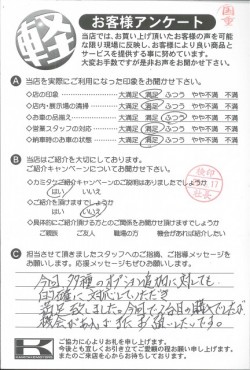 軽
お客様アンケート
当店では、お買い上げ頂いたお客様の声を可能
な限り現場に反映し、お客様により良い商品と
サービスを提供する事に努めています。
大変お手数ですが是非お声をお聞かせ下さい。
A 当店を実際にご利用になった印象をお聞かせ下さい。
◇店の印象 大満足 満足 ふつう やや不満 不満
◇店内・展示場の清掃 大満足 満足 ふつう やや不満 不満
◇お車の品揃え 大満足 満足 ふつう やや不満 不満
◇営業スタッフの対応 大満足 満足 ふつう やや不満 不満
◇納車時のお車の状態 大満足 満足 ふつう やや不満 不満
B 当店はご紹介を大切にしております。
ご紹介キャンペーンについてお聞かせ下さい。
◇カミタケご紹介キャンペーンのご説明はありましたでしょうか
はい いいえ
◇ご紹介を頂けますでしょうか
はい いいえ
◇具体的にご紹介頂ける方とのご関係をお聞かせ頂けますでしょうか
ご親族 ご友人 職場の方 機会があれば紹介したい
C 担当させて頂きましたスタッフへのご指摘、ご指導メッセージを
お願いします。応援メッセージもぜひお願いします。
今回、多種のオプション追加に対しても
的確に対応していただき
満足致しました。今回で2台目の購入でしたが
機会があれば又お願いしたいです。
ご協力に心よりお礼を申し上げます。
今後とも宜しくお引き立てご愛顧の程お願い申し上げます。
またのご来店を心からお待ちしております。